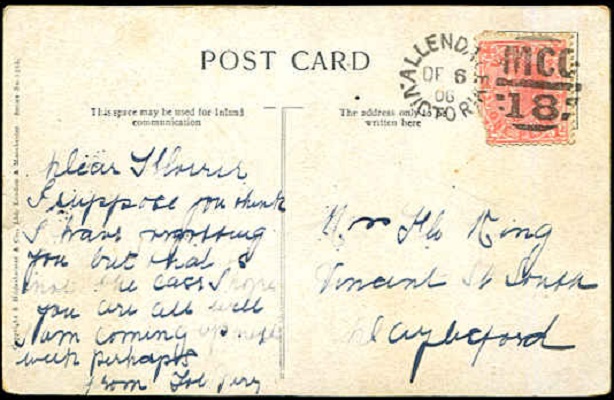 POST CARD
ALLENDALE
DE 6
06
VICTORIA
MCC
18.
This space may be used for Inland
communication
The address only to be
written here
Dear Florrie
I suppose you think
I have
you but that is
not the case I hope
you are all well
I am coming up next
week perhaps
from
Flo King
Vincent St South
Daylesford